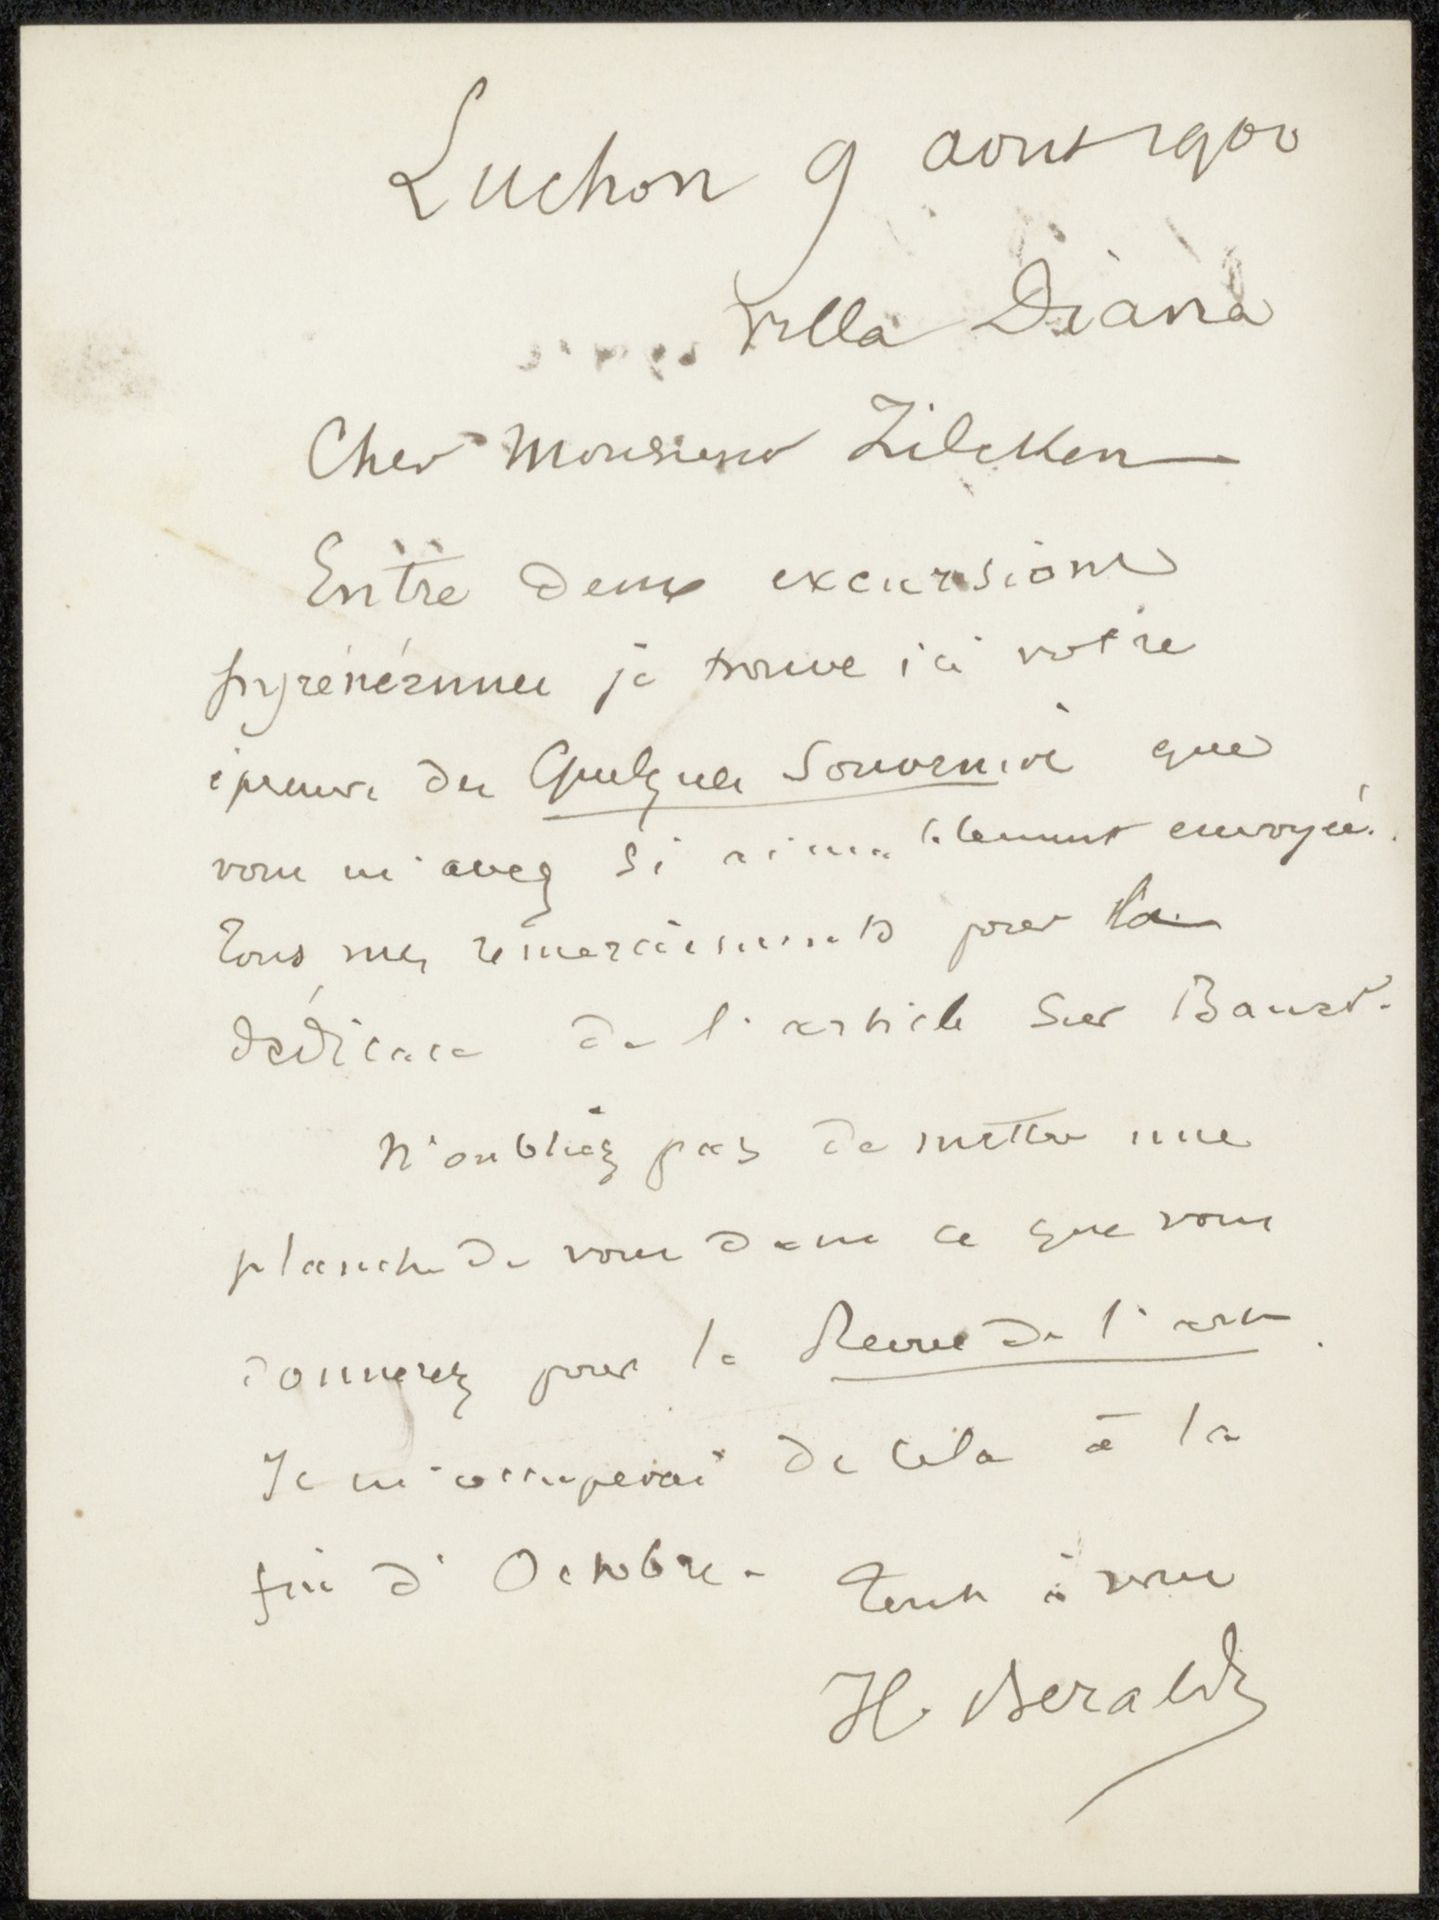 Luchon 9 aout 1900
Villa Diana
Cher Monsieur Zilcken
Entre deux excursions
pyrénéennes je trouve ici votre
épreuve des Quelques Souvenirs que
vous m'avez si aimablement envoyée.
Tous mes remerciements pour la
dédicace de l'article sur Bauer.
N'oubliez pas de mettre une
planche de vous dans ce que vous
donnerez pour la Revue de l'art.
Je m'occuperai de cela à la
fin d'Octobre. Tout à vous
H. Beraldi